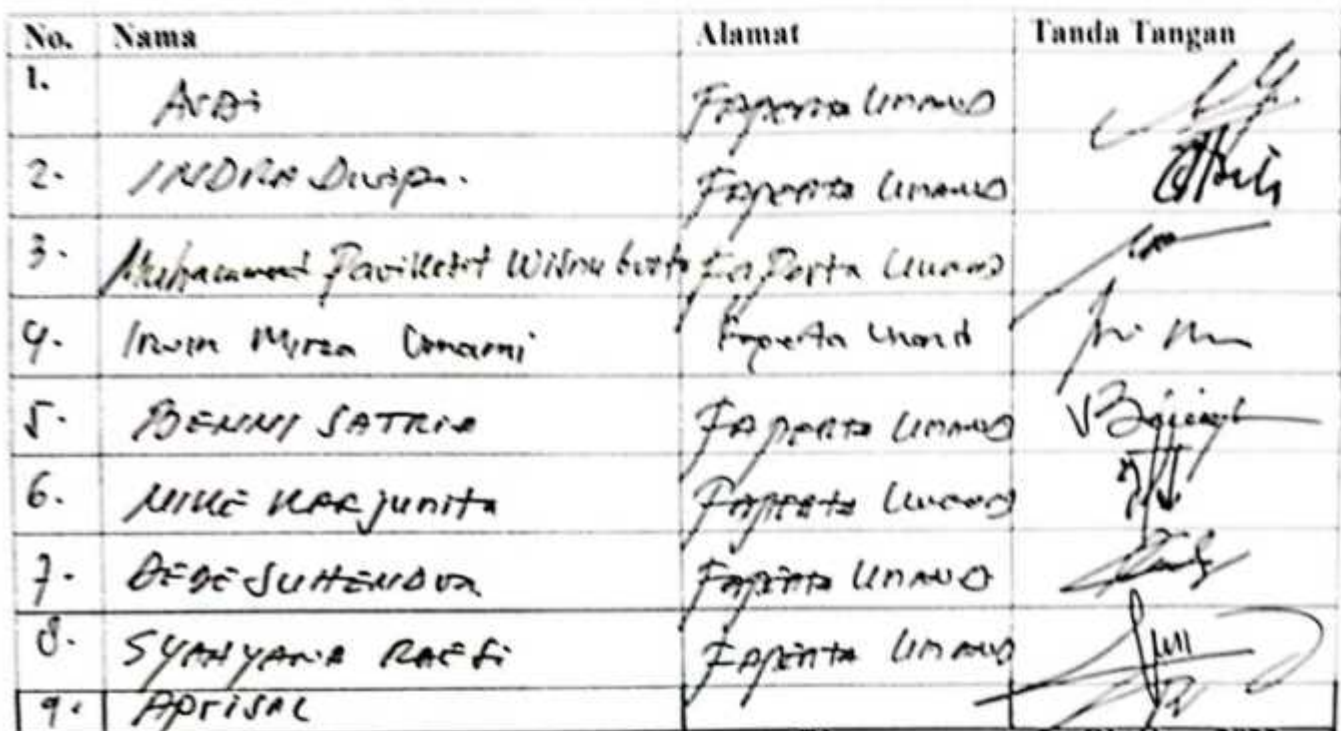 No. Nama Alamat Tanda Tangan
1. Ardi Faperta Unand
2. INDRA Dwipa. Faperta Unand
3. Muhammad Parikesit Wisnubroto Faperta Unand
4. Irwin Mirza Umami Faperta Unand
5. BENNI SATRIA Faperta Unand
6. MIKE KARjunita Faperta Unand
7. DEDE SUHENDRA Faperta Unand
8. SYAHYANA RAESi Faperta Unand
9. Aprisal